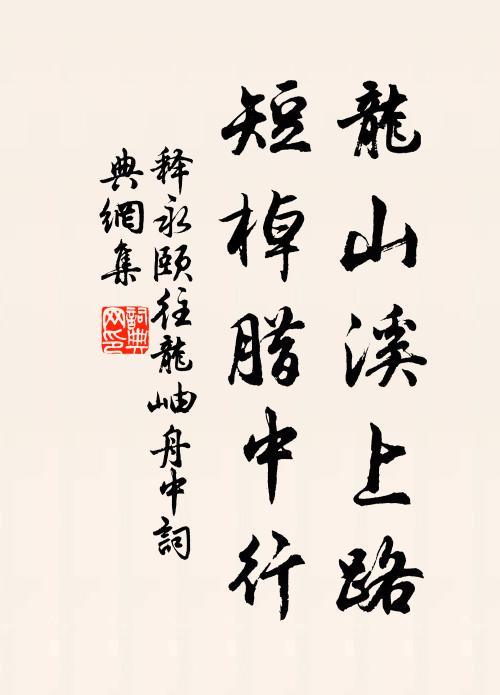 龍山溪上路
短棹腊中行
释永颐往龍岫舟中詞
典網集
詞典
网印